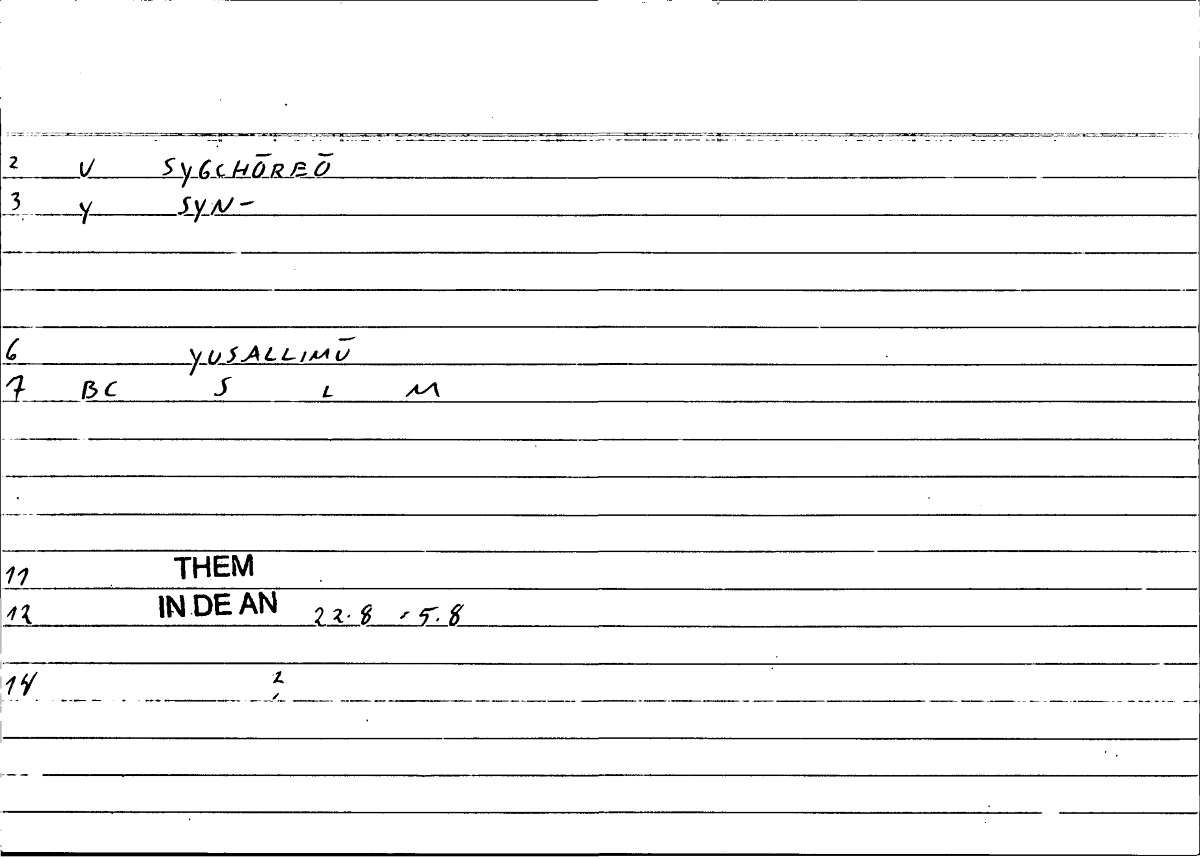 2 V SYGCHŌREŌ
3 Y SYN-
6 YUSALLIMŪ
7 BC S L M
11 THEM
12 IN DE AN 22.8 -5.8
14 2